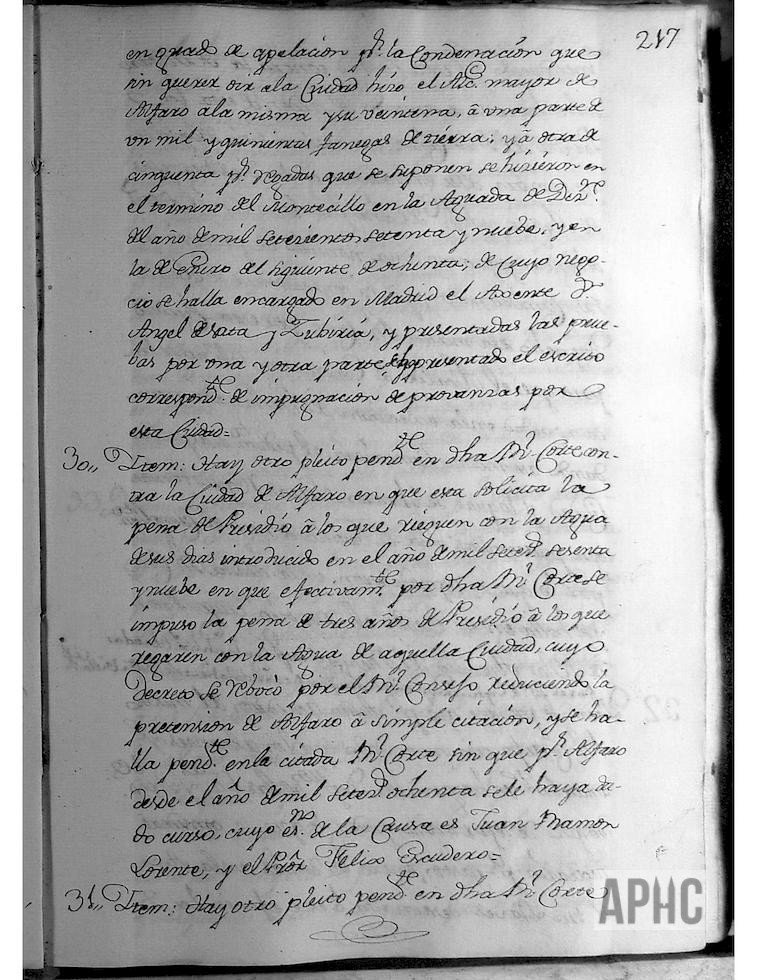 217
en grado de apelacion pr. la Condenacion que
sin querer oir ala Ciudad hizo el Alc. mayor de
Alfaro ala misma y su veintena, â una parte de
un mil y quinientas fanegas de tierra; yâ otra de
cinquenta pr. regadas que se suponen se hizieron en
el termino del Montecillo en la Aguada de Dizre.
del año de mil setezientos setenta y nuebe, y en
la de Enero del siguiente de ochenta; de cuyo nego-
cio se halla encargado en Madrid el Axente Dn.
Angel de sata y Zubiria, y presentadas las prue-
bas por una y otra parte, presentado el escrito
correspondte. de impugnacion de provanzas por
esta Ciudad=
30,, Item: Hay otro pleito pendte. en dha Rl. Corte con-
tra la Ciudad de Alfaro en que esta solicita la
pena de Presidio â los que rieguen con la Agua
de sus dias introducido en el año de mil setezs. sesenta
y nuebe en que efectivamte. por dha Rl. Corte se
impuso la pena de tres años de Presidio â los que
regaren con la Agua de aquella Ciudad, cuyo
Decreto se rebocó por el Rl. Consejo reduciendo la
pretension de Alfaro â simple citación, y se ha-
lla pendte. enla citada Rl. Corte sin que pr. Alfaro
desde el año de mil setezs. ochenta sele haya da-
do curso, cuyo esno. de la Causa es Juan Ramon
Lorente, y el Pror. Felix Escudero=
31,, Item: Hay otro pleito pendte. en dha Rl. Corte
APHC